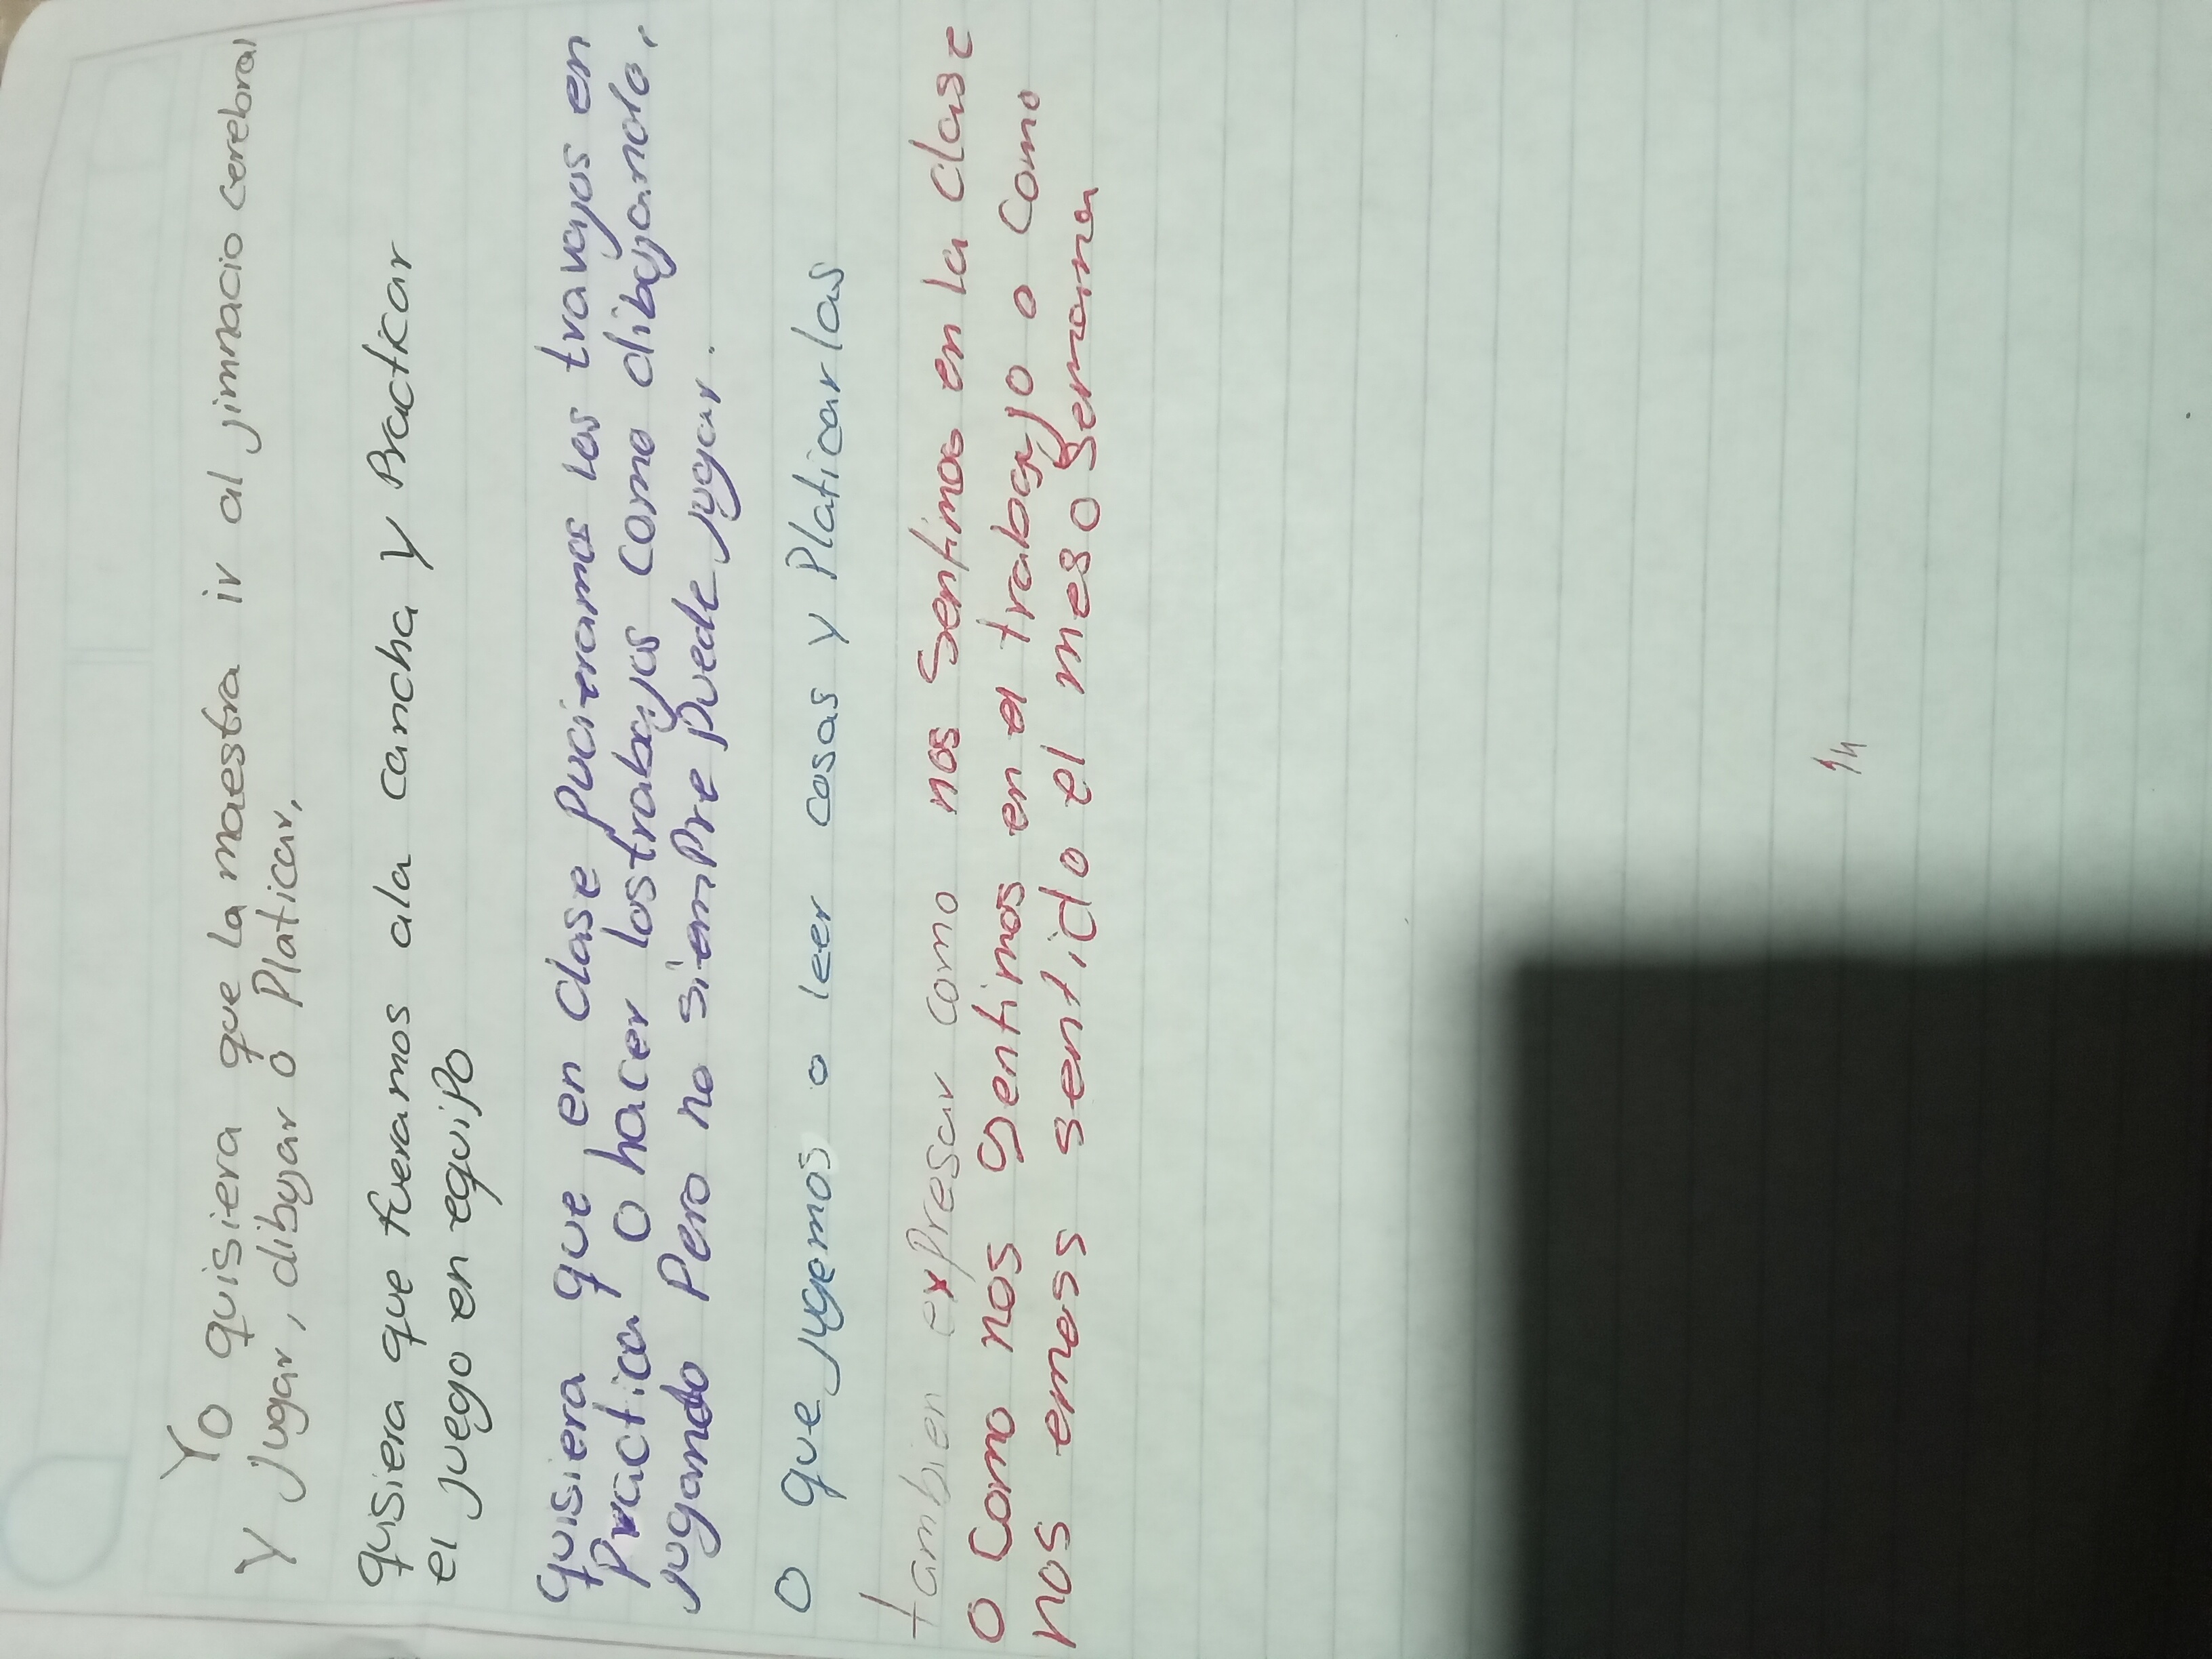 Yo quisiera que la maestra ir al jimnacio cerebral
y jugar, dibujar o Platicar,
quisiera que fueramos ala cancha y Practicar
el juego en equipo
quisiera que en clase pucieramos los travajos en
Practica o hacer los trabajos como dibujandolo,
jugando Pero no siempre puede jugar.
o que jugemos o leer cosas y Platicarlas
tambien expresar como nos sentimos en la clase
o como nos sentimos en el trabajo o como
nos emos sentido el mes o semana